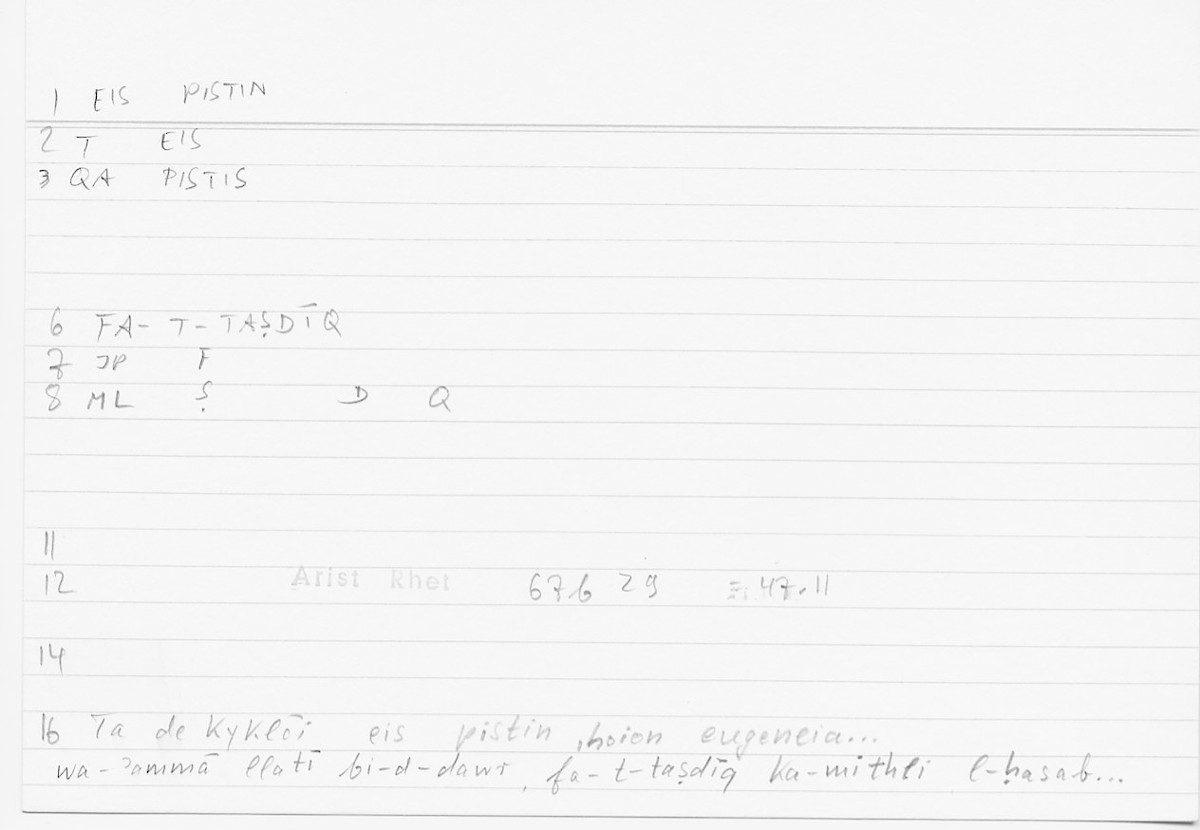 1 EIS PISTIN
2 T EIS
3 QA PISTIS
6 FA- T- TAṢDĪQ
7 JP F
8 ML Ṣ D Q
11
12 Arist Rhet 67b 29 = 47.11
14
16 Ta de kyklōi eis pistin, hoion eugeneia...
wa-ʾammā llatī bi-d-dawr, fa-t-taṣdīq ka-mithli l-ḥasab...